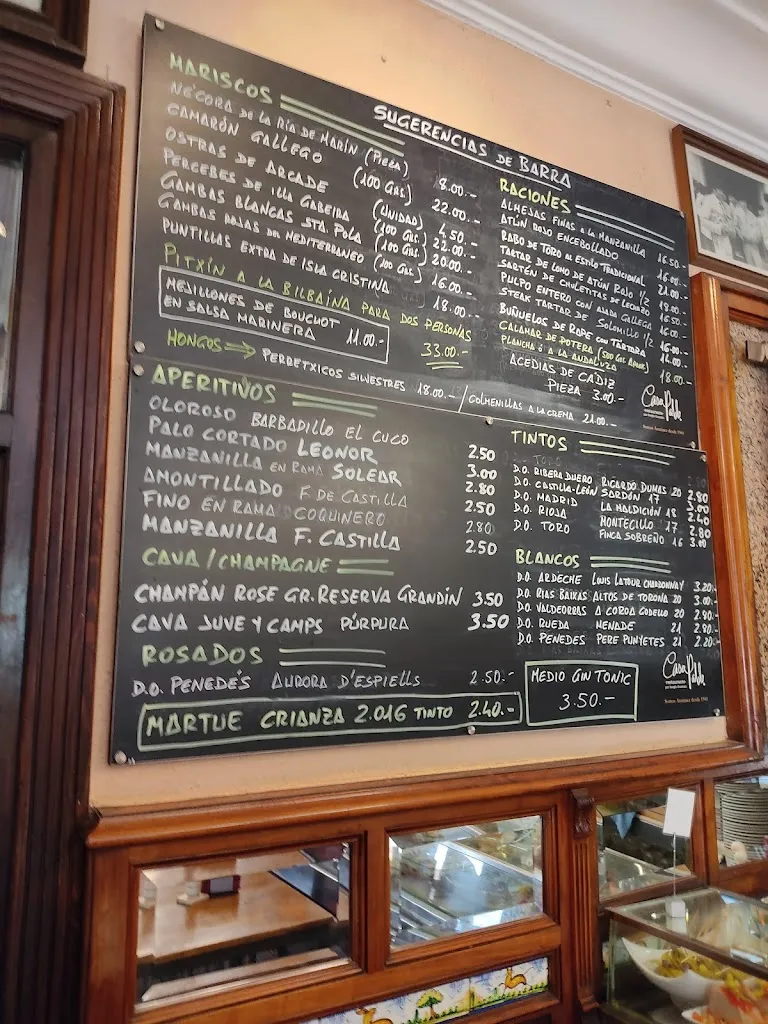 SUGERENCIAS DE BARRA
MARISCOS
NÉCORA DE LA RÍA DE MARÍN (PIEZA) 8.00.-
CAMARÓN GALLEGO (100 GRS) 22.00.-
OSTRAS DE ARCADE (UNIDAD) 4.50.-
PERCEBES DE ILLA GABEIRA (100 GRS.) 22.00.-
GAMBAS BLANCAS STA. POLA (100 GRS) 20.00.-
GAMBAS ROJAS DEL MEDITERRANEO (100 GRS) 16.00.-
PUNTILLAS EXTRA DE ISLA CRISTINA 18.00.-
PITXÍN A LA BILBAÍNA PARA DOS PERSONAS 33.00.-
MEJILLONES DE BOUCHOT
EN SALSA MARINERA 11.00.-
HONGOS PERRETXICOS SILVESTRES 18.00.- / COLMENILLAS A LA CREMA 21.00.-
RACIONES
ALMEJAS FINAS A LA MANZANILLA 16.50.-
ATÚN ROJO ENCEBOLLADO 16.00.-
RABO DE TORO AL ESTILO TRADICIONAL 21.00.-
TARTAR DE LOMO DE ATÚN ROJO 1/2 18.00.-
SARTÉN DE CHULETITAS DE LECHAZO 16.50.-
PULPO ENTERO CON AJADA GALLEGA
STEAK TARTAR DE SOLOMILLO 1/2 16.00.-
BUÑUELOS DE RAPE CON TÁRTARA
CALAMAR DE POTERA (500 GRS APROX) 18.00.-
PLANCHA Ó A LA ANDALUZA
ACEDIAS DE CÁDIZ
PIEZA 3.00.-
Casa Pablo
APERITIVOS
OLOROSO BARBADILLO EL CUCO 2.50
PALO CORTADO LEONOR 3.00
MANZANILLA EN RAMA SOLEAR 2.80
AMONTILLADO F. DE CASTILLA 2.50
FINO EN RAMA COQUINERO 2.80
MANZANILLA F. CASTILLA 2.50
CAVA / CHAMPAGNE
CHAMPÁN ROSE GR. RESERVA GRANDÍN 3.50
CAVA JUVE Y CAMPS PÚRPURA 3.50
ROSADOS
D.O. PENEDÉS AURORA D'ESPIELLS 2.50.-
MARTUE CRIANZA 2.016 TINTO 2.40.-
TINTOS
D.O. RIBERA DUERO RICARDO DUMAS 20 2.80
D.O. CASTILLA-LEÓN SARDÓN 17 3.00
D.O. MADRID LA MALDICIÓN 18 2.40
D.O. RIOJA MONTECILLO 17 2.80
D.O. TORO FINCA SOBREÑO 16 3.00
BLANCOS
D.O. ARDECHE LOUIS LATOUR CHARDONNAY 3.20.-
D.O. RIAS BAIXAS ALTOS DE TORONA 20 3.00.-
D.O. VALDEORRAS A COROA GODELLO 20 2.80.-
D.O. RUEDA MENADE 21 2.80.-
D.O. PENEDES PERE PUNYETES 21 2.20.-
MEDIO GIN TONIC
3.50.-
Casa Pablo